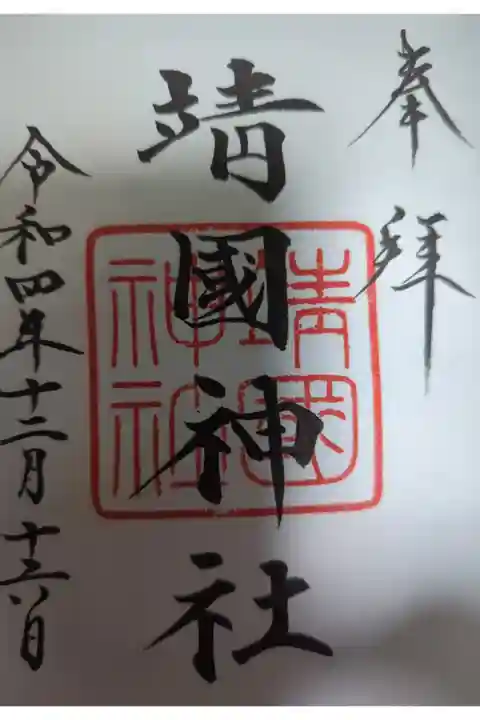 奉拜
靖國神社
靖國
神社
令和四年十二月十六日